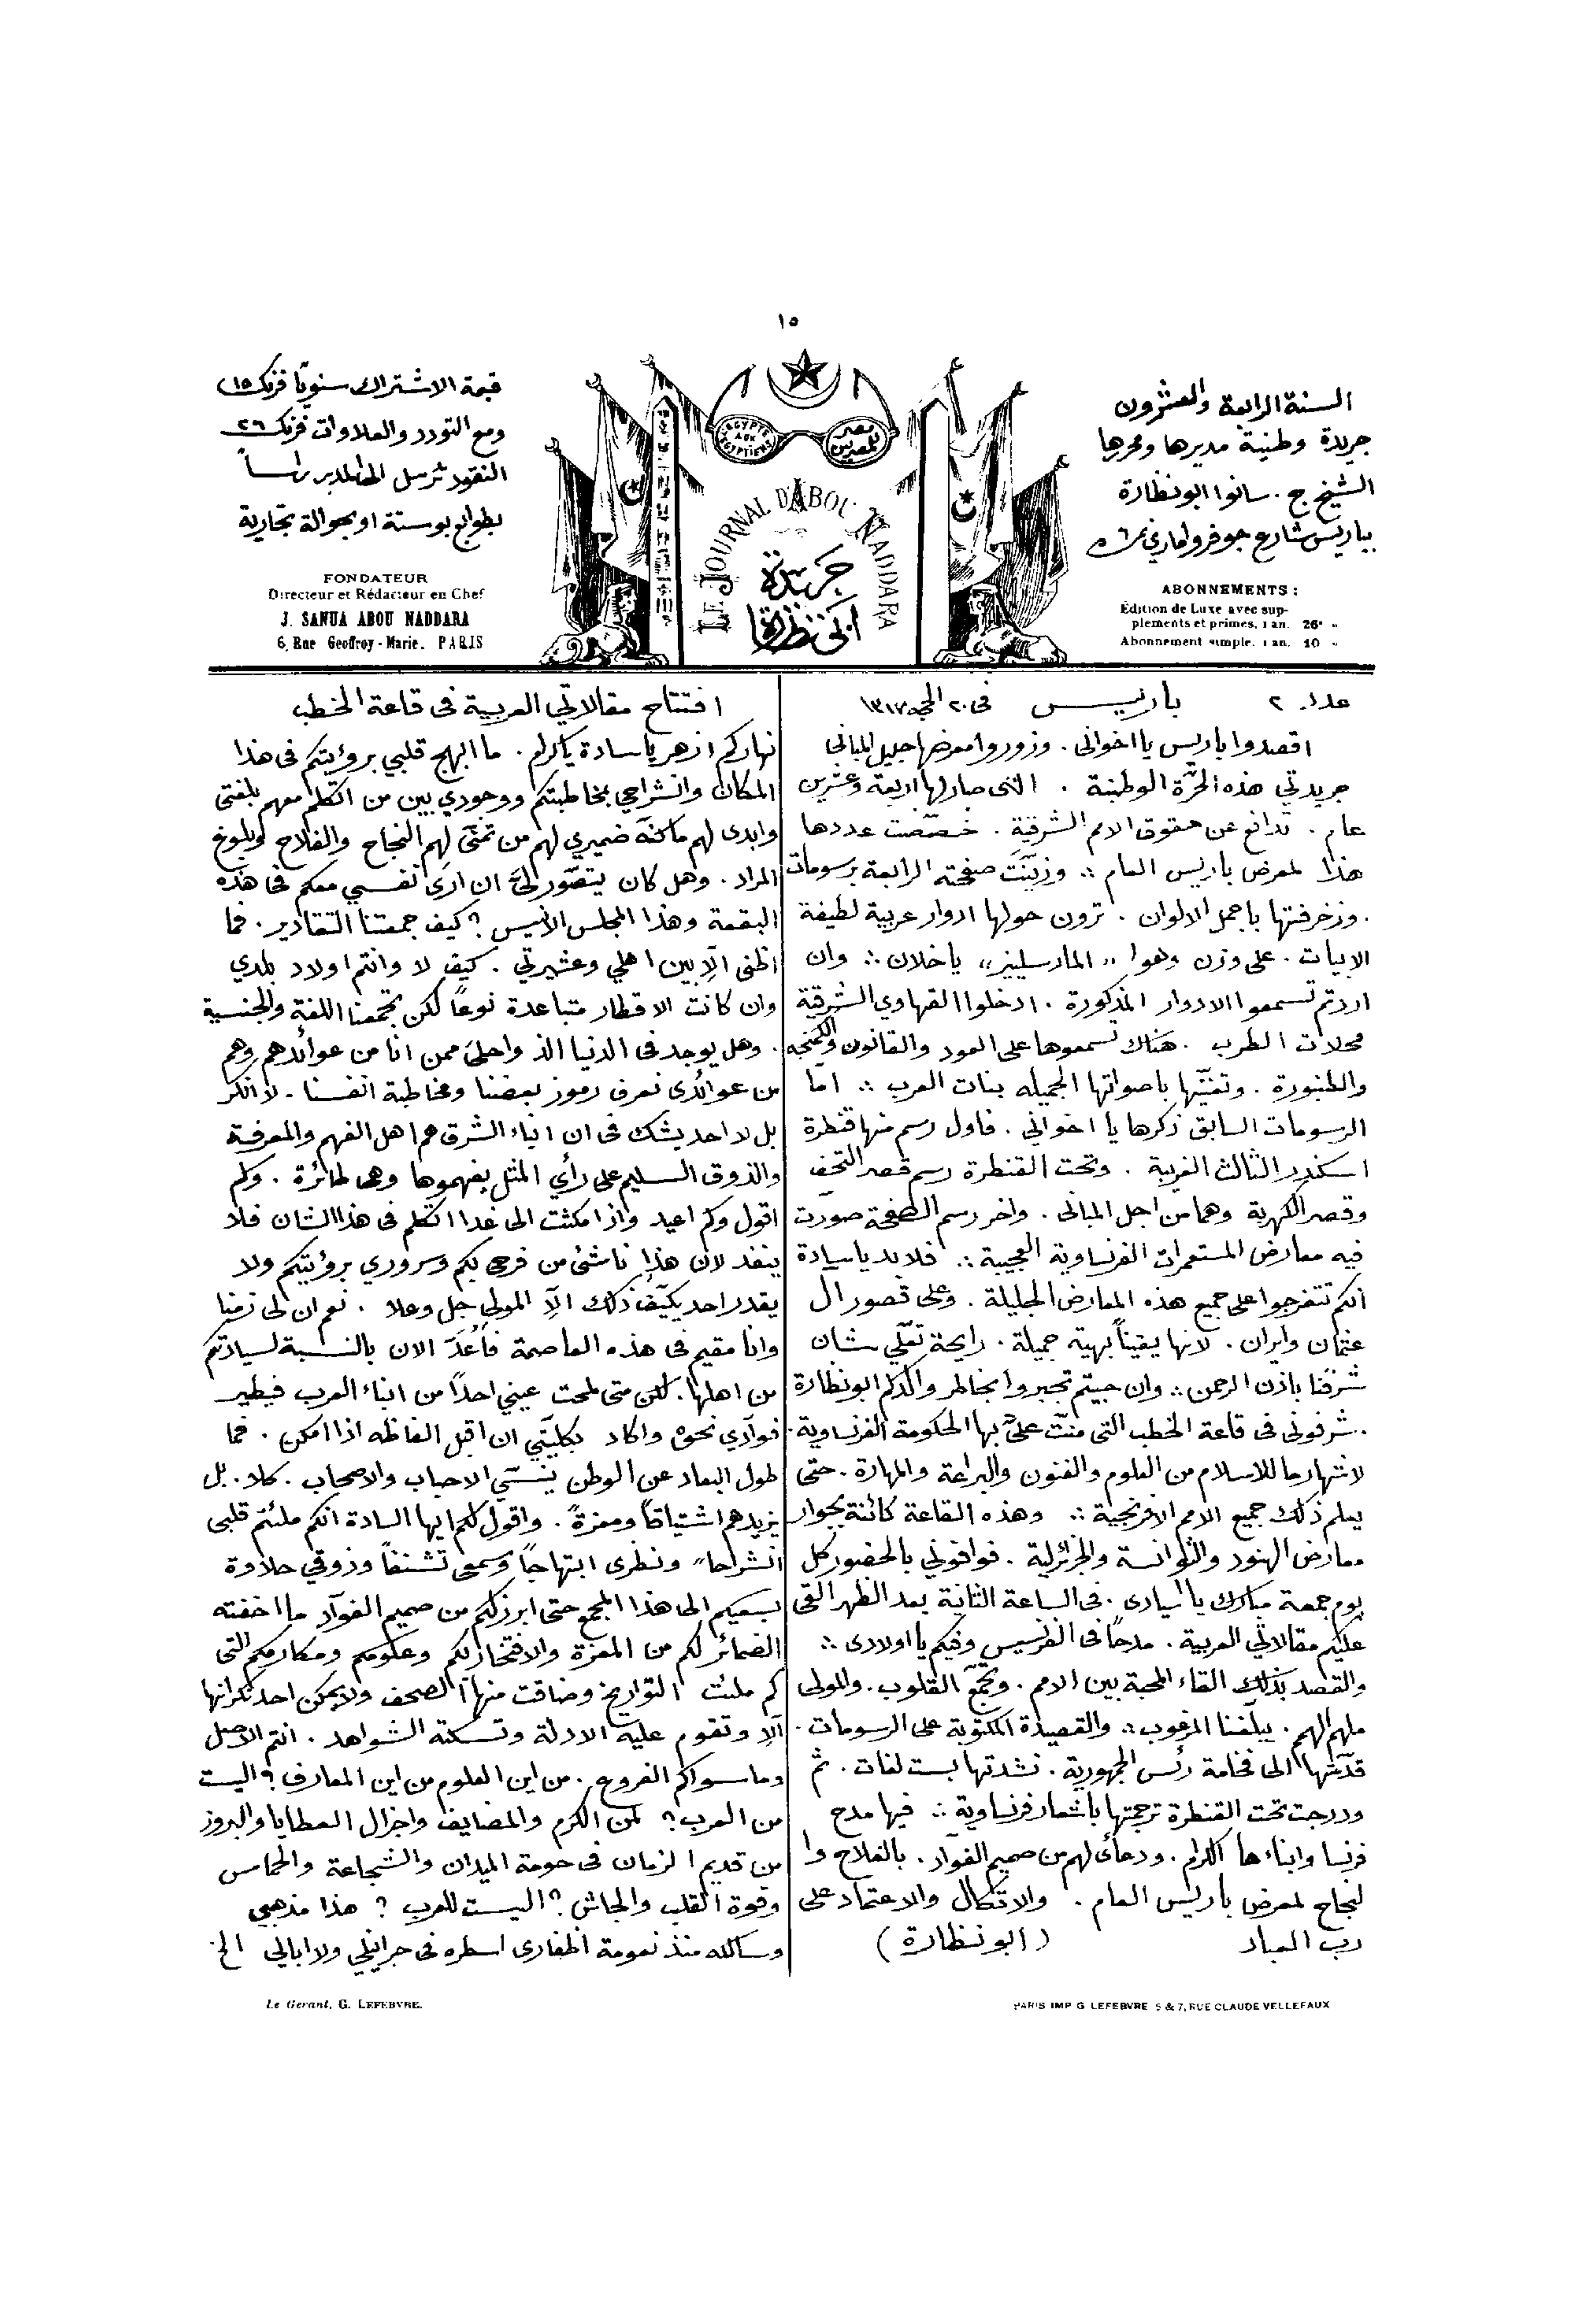 ١٥
السنة الرابعة والعشرون
جريدة وطنية مديرها ومحررها
الشيخ ج. سانوا ابو نظارة
بباريس شارع جوفروا ماري ٦
ABONNEMENTS :
Édition de Luxe avec sup-
pléments et primes, 1 an. 26 »
Abonnement simple, 1 an. 10 »
L'EGYPTE AUX EGYPTIENS
مصر للمصريين
LE JOURNAL D'ABOU NADDARA
جريدة
ابي نظارة
قيمة الاشتراك سنويًا فرنك ١٥
ومع التودد والعلاوات فرنك ٢٦
النقود ترسل الى المدير راساً
بطوابع بوستة او بحوالة تجارية
FONDATEUR
Directeur et Rédacteur en Chef
J. SANUA ABOU NADDARA
6, Rue Geoffroy-Marie. PARIS
عدد ٢ باريس في ٢٠ الحجه ١٣١٧
اقصدوا باريس يا اخواني . وزوروا معرضها جليل المباني
جريدتي هذه الحرّة الوطنية . التي صار لها اربعة وعشرين
عام . تدافع عن حقوق الامم الشرقية . خصّصت عددها
هذا لمعرض باريس العام ∴ وزيّنَت صفحته الرابعة برسومات
. وزخرفتها باجمل الالوان . ترون حولها ادوار عربية لطيفة
الابيات . على وزن وهوا " المارسلييز " يا خلان ∴ وان
اردتم تسمعوا الادوار المذكورة . ادخلوا القهاوي الشرقية
محلات الطرب . هناك تسمعوها على العود والقانون والكمنجه
والطنبورة . وتغنّيها باصواتها الجميله بنات العرب ∴ امّا
الرسومات السابق ذكرها يا اخواني . فاول رسم منها قنطرة
اسكندر الثالث الغريبة . وتحت القنطرة رسم قصر التحف
وقصر الكهربة وهما من اجل المباني . واخر رسم الصفحة صورت
فيه معارض المستعمرات الفرنساوية العجيبة ∴ فلابد يا سيادة
انكم تتفرجوا على جميع هذه المعارض الجليلة . وعلى قصور ال
عثمان وايران . لانها يقيناً بهية جميلة . رايحة تعلّي شان
شرقنا باذن الرحمن ∴ وان جيتم تجبروا بخاطر والدكم ابو نظارة
. شرفوني في قاعة الخطب التي منّت عليّ بها الحكومة الفرنساوية .
لاشهار ما للاسلام من العلوم والفنون والبراعة والمهارة . حتى
يعلم ذلك جميع الامم الافرنجية ∴ وهذه القاعة كائنة بجوار
معارض الهنود والتوانسة والجزائرلية . فوافوني بالحضور كل
يوم جمعة مبارك يا اسيادى . في الساعة الثانية بعد الظهر القي
عليكم مقالاتي العربية . مدحًا في الفرنسيس وفيكم يا اولادى ∴
والقصد بذلك القاء المحبة بين الامم . وتجمّع القلوب . والمولى
ملهم الهمم . يبلغنا المرغوب ∴ والقصيدة المكتوبة على الرسومات .
قدّمتها الى فخامة رئس الجمهورية . نشدتها بست لغات . ثم
ودرجت تحت القنطرة ترجمتها باشعار فرنساوية ∴ فيها مدح
فرنسا وابناءها الكرام . ودعائي لهم من صميم الفوآد . بالفلاح وا
لنجاح لمعرض باريس العام . والاتكال والاعتماد على
رب العباد (ابو نظارة)
افتتاح مقالاتي العربية في قاعة الخطب
نهاركم ازهر يا سادة يا كرام . ما ابهج قلبي برؤيتكم في هذا
المكان وانشراحي بمخاطبتكم ووجودي بين من اتكلم معهم بلغتي
وابدى لهم ما كنّه ضميري لهم من تمنّى لهم النجاح والفلاح وبلوغ
المراد . وهل كان يتصوّر لي ان ارى نفسي معكم في هذه
البقعة وهذا المجلس الانيس ؟ كيف جمعتنا التقادير . فما
اظنى الّا بين اهلي وعشيرتي . كيف لا وانتم اولاد بلدي
وان كانت الاقطار متباعدة نوعاً لكن تجمعنا اللغة والجنسية
. وهل يوجد في الدنيا الذ واحلى ممن انا من عوائدهم وهم
من عوائدى نعرف رموز بعضنا ومخاطبة انفسنا . لا انكر
بل لا احد يشك في ان ابناء الشرق هم اهل الفهم والمعرفة
والذوق السليم على رأي المثل يفهموها وهى طائرة . وكم
اقول وكم اعيد واذا مكثت الى غدا اتكلم في هذا الشان فلا
ينفد لان هذا ناشئ من فرحي بكم وسروري برؤيتكم ولا
يقدر احد يكيّف ذلك الّا المولى جل وعلا . نعم ان لي زمنا
وانا مقيم في هذه العاصمة فأُعدّ الان بالنسبة لسيادتكم
من اهلها . لكن متى لمحت عيني احدًا من ابناء العرب فيطير
فوآدي نحوه واكاد بكليّتي ان اقبل الفاظه اذا امكن . فما
طول البعاد عن الوطن ينسّي الاحباب والاصحاب . كلا . بل
يزيدهم اشتياقًا ومعزةً . واقول لكم ايها السادة انكم ملئتم قلبي
انشراحاً ونظرى ابتهاجاً وسمعي تشنفاً وذوقي حلاوة
بسعيكم الى هذا المجمع حتى ابرز لكم من صميم الفوآد ما اخفته
الضمائر لكم من المعزة والافتخار بكم وعلومكم ومكارمكم التي
كم ملئت التواريخ وضاقت منها الصحف ولا يمكن احد نكرانها
الّا وتقوم عليه الادلة وتسكته الشواهد . انتم الاصل
وما سواكم الفروع . من اين العلوم من اين المعارف ؟ اليست
من العرب ؟ لمن الكرم والمضايف واجزال العطايا والبروز
من قديم الزمان في حومة الميدان والشجاعة والحماس
وقوة القلب والجاش ؟ اليست للعرب ؟ هذا مذهبي
ومسالكه منذ نعومة اظفارى اسطره في جرائيلي ولا ابالي الخ
Le Gérant, G. LEFEBVRE.
PARIS IMP G LEFEBVRE 5 & 7, RUE CLAUDE VELLEFAUX